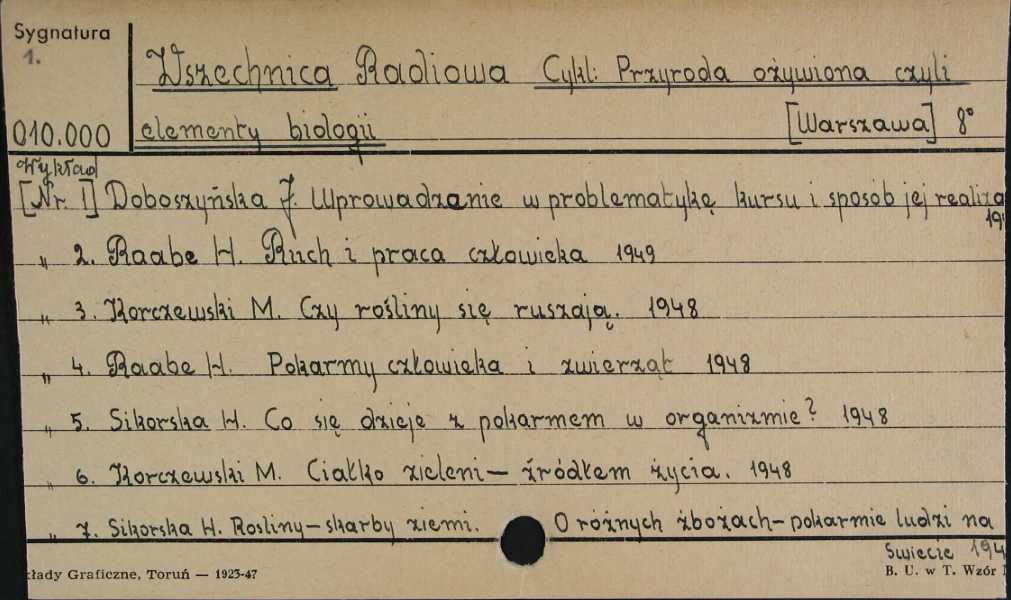 Sygnatura
1.
Wszechnica Radiowa Cykl: Przyroda ożywiona czyli
010.000 elementy biologii [Warszawa] 8°
Wykład
[Nr. 1] Doboszyńska J. Wprowadzanie w problematykę kursu i sposób jej realiza
19
„ 2. Raabe H. Ruch i praca człowieka 1949
„ 3. Korczewski M. Czy rośliny się ruszają. 1948
„ 4. Raabe H. Pokarmy człowieka i zwierząt 1948
„ 5. Sikorska H. Co się dzieje z pokarmem w organizmie? 1948
„ 6. Korczewski M. Ciałko zieleni — źródłem życia. 1948
„ 7. Sikorska H. Rośliny – skarby ziemi. O różnych zbożach – pokarmie ludzi na
świecie 194
kłady Graficzne, Toruń — 1923-47
B. U. w T. Wzór